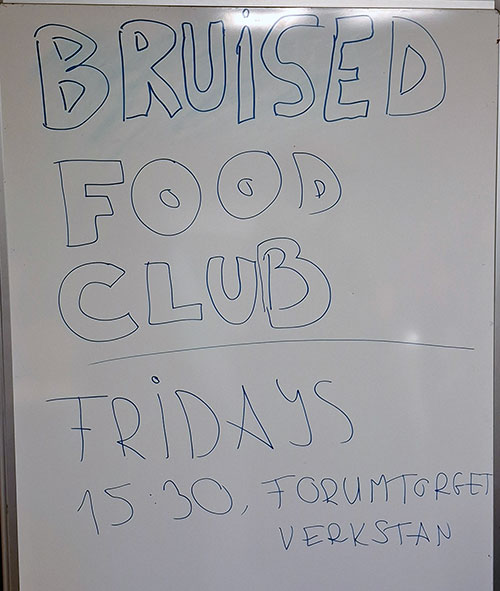 BRUISED
FOOD
CLUB
FRIDAYS
15:30, FORUMTORGET
VERKSTAN